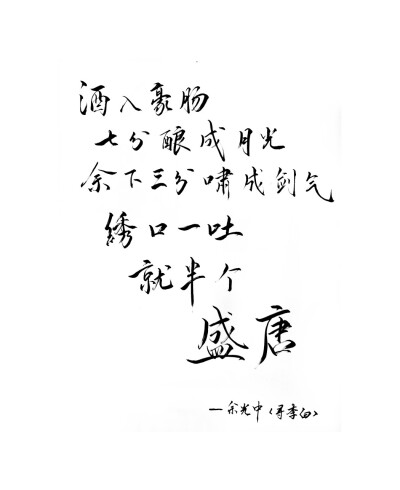 酒入豪肠
七分酿成月光
余下三分啸成剑气
绣口一吐
就半个
盛唐
—余光中《寻李白》